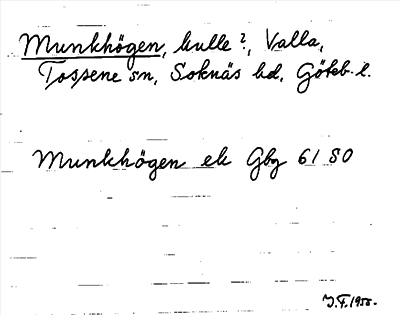 Munkhögen, kulle?, Valla,
Tossene sn, Soknäs hd, Göteb. l.
Munkhögen ek Gbg 61 SO
J.F. 1955.